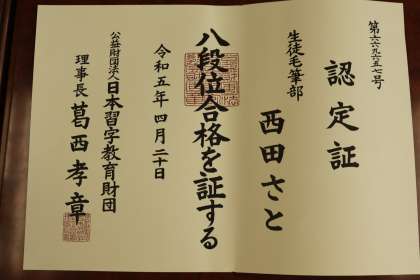 第六六九六五七号
認定証
生徒毛筆部
西田さと
八段位合格を証する
令和五年四月二十日
公益財団法人日本習字教育財団
理事長 葛西孝章